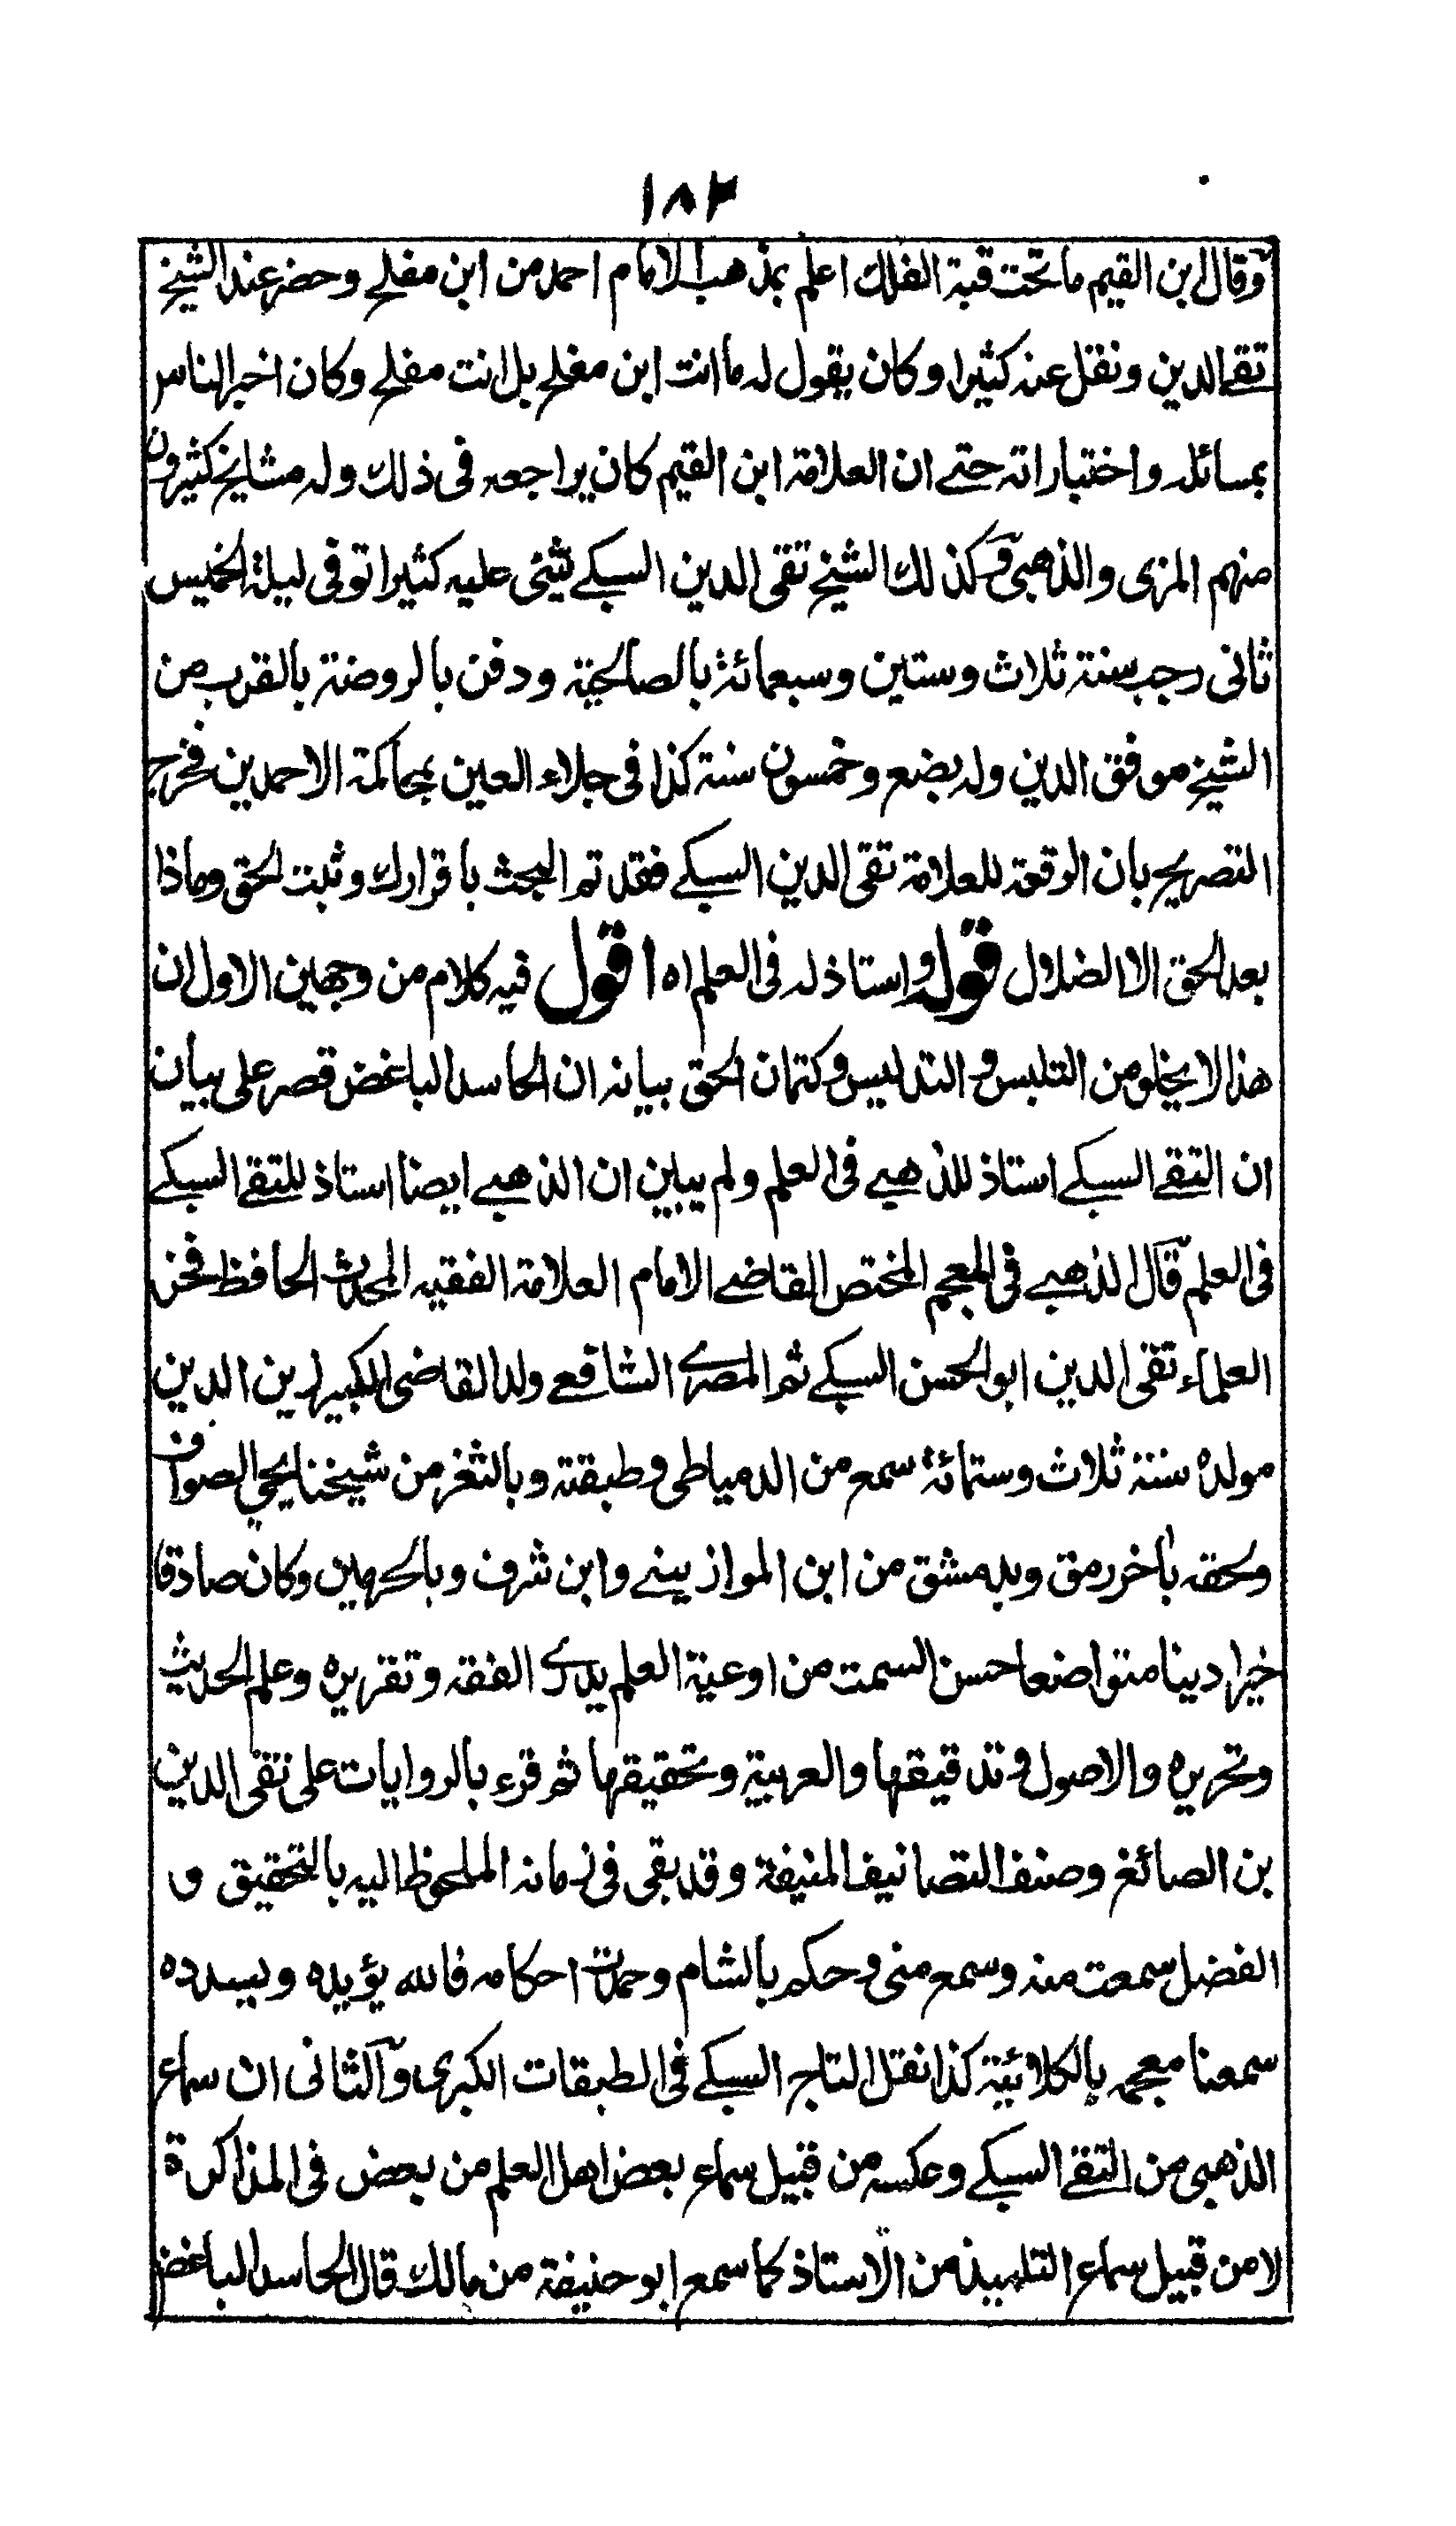 ١٨٢
وقال ابن القيم ما تحت قبة الفلك اعلم بمذهب الامام احمد من ابن مفلح وحضر عند الشيخ
تقے الدين ونقل عنه كثيرا وكان يقول له ما انت ابن مفلح بل انت مفلح وكان اخبر الناس
بمسائله واختياراته حتے ان العلامة ابن القيم كان يراجعه فى ذلك وله مشايخ كثيرون
منهم المزى والذهبى وكذلك الشيخ تقى الدين السبكے يثنى عليه كثيرا توفى ليلة الخميس
ثانى رجب سنة ثلاث وستين وسبعمائة بالصالحية ودفن بالروضة بالقرب من
الشيخ موفق الدين وله بضع وخمسون سنة كذا فى جلاء العين بمحاكمة الاحمدين فخرج
التصريح بان الوقعة للعلامة تقى الدين السبكے فقد تم البحث باقرارك وثبت الحق وماذا
بعد الحق الا الضلال قوله واستاذ له فى العلم اه اقول فيه كلام من وجهين الاول ان
هذا لا يخلو من التلبس والتدليس وكتمان الحق بيانه ان الحاسد الباغض قصر على بيان
ان التقے السبكے استاذ للذهبے فى العلم ولم يبين ان الذهبے ايضا استاذ للتقے السبكے
فى العلم قال الذهبے فى المعجم المختص القاضے الامام العلامة الفقيه المحدث الحافظ فخر
العلماء تقى الدين ابو الحسن السبكے ثم المصرے الشافعے ولد القاضى الكبير زين الدين
مولده سنة ثلاث وستمائة سمع من الدمياطى وطبقته وبالثغر من شيخنا يحيى الصواف
ولحقه بآخر رمق وبدمشق من ابن الموازينے وابن شرف وبالحرمين وكان صادقا
خيرا دينا متواضعا حسن السمت من اوعية العلم يدرے الفقه وتقريره وعلم الحديث
وتحريره والاصول وتدقيقها والعربية وتحقيقها ثم قرء بالروايات على تقى الدين
بن الصائغ وصنف التصانيف المنيفة وقد بقى فى زمانه الملحوظ اليه بالتحقيق و
الفضل سمعت منه وسمع منى وحكم بالشام وحمدت احكامه فالله يؤيده ويسدده
سمعنا معجمه بالكلائية كذا نقل التاج السبكے فى الطبقات الكبرى والثانى ان سماع
الذهبى من التقے السبكے وعكسه من قبيل سماع بعض اهل العلم من بعض فى المذاكرة
لا من قبيل سماع التلميذ من الاستاذ كما سمع ابو حنيفة من مالك قال الحاسد الباغض